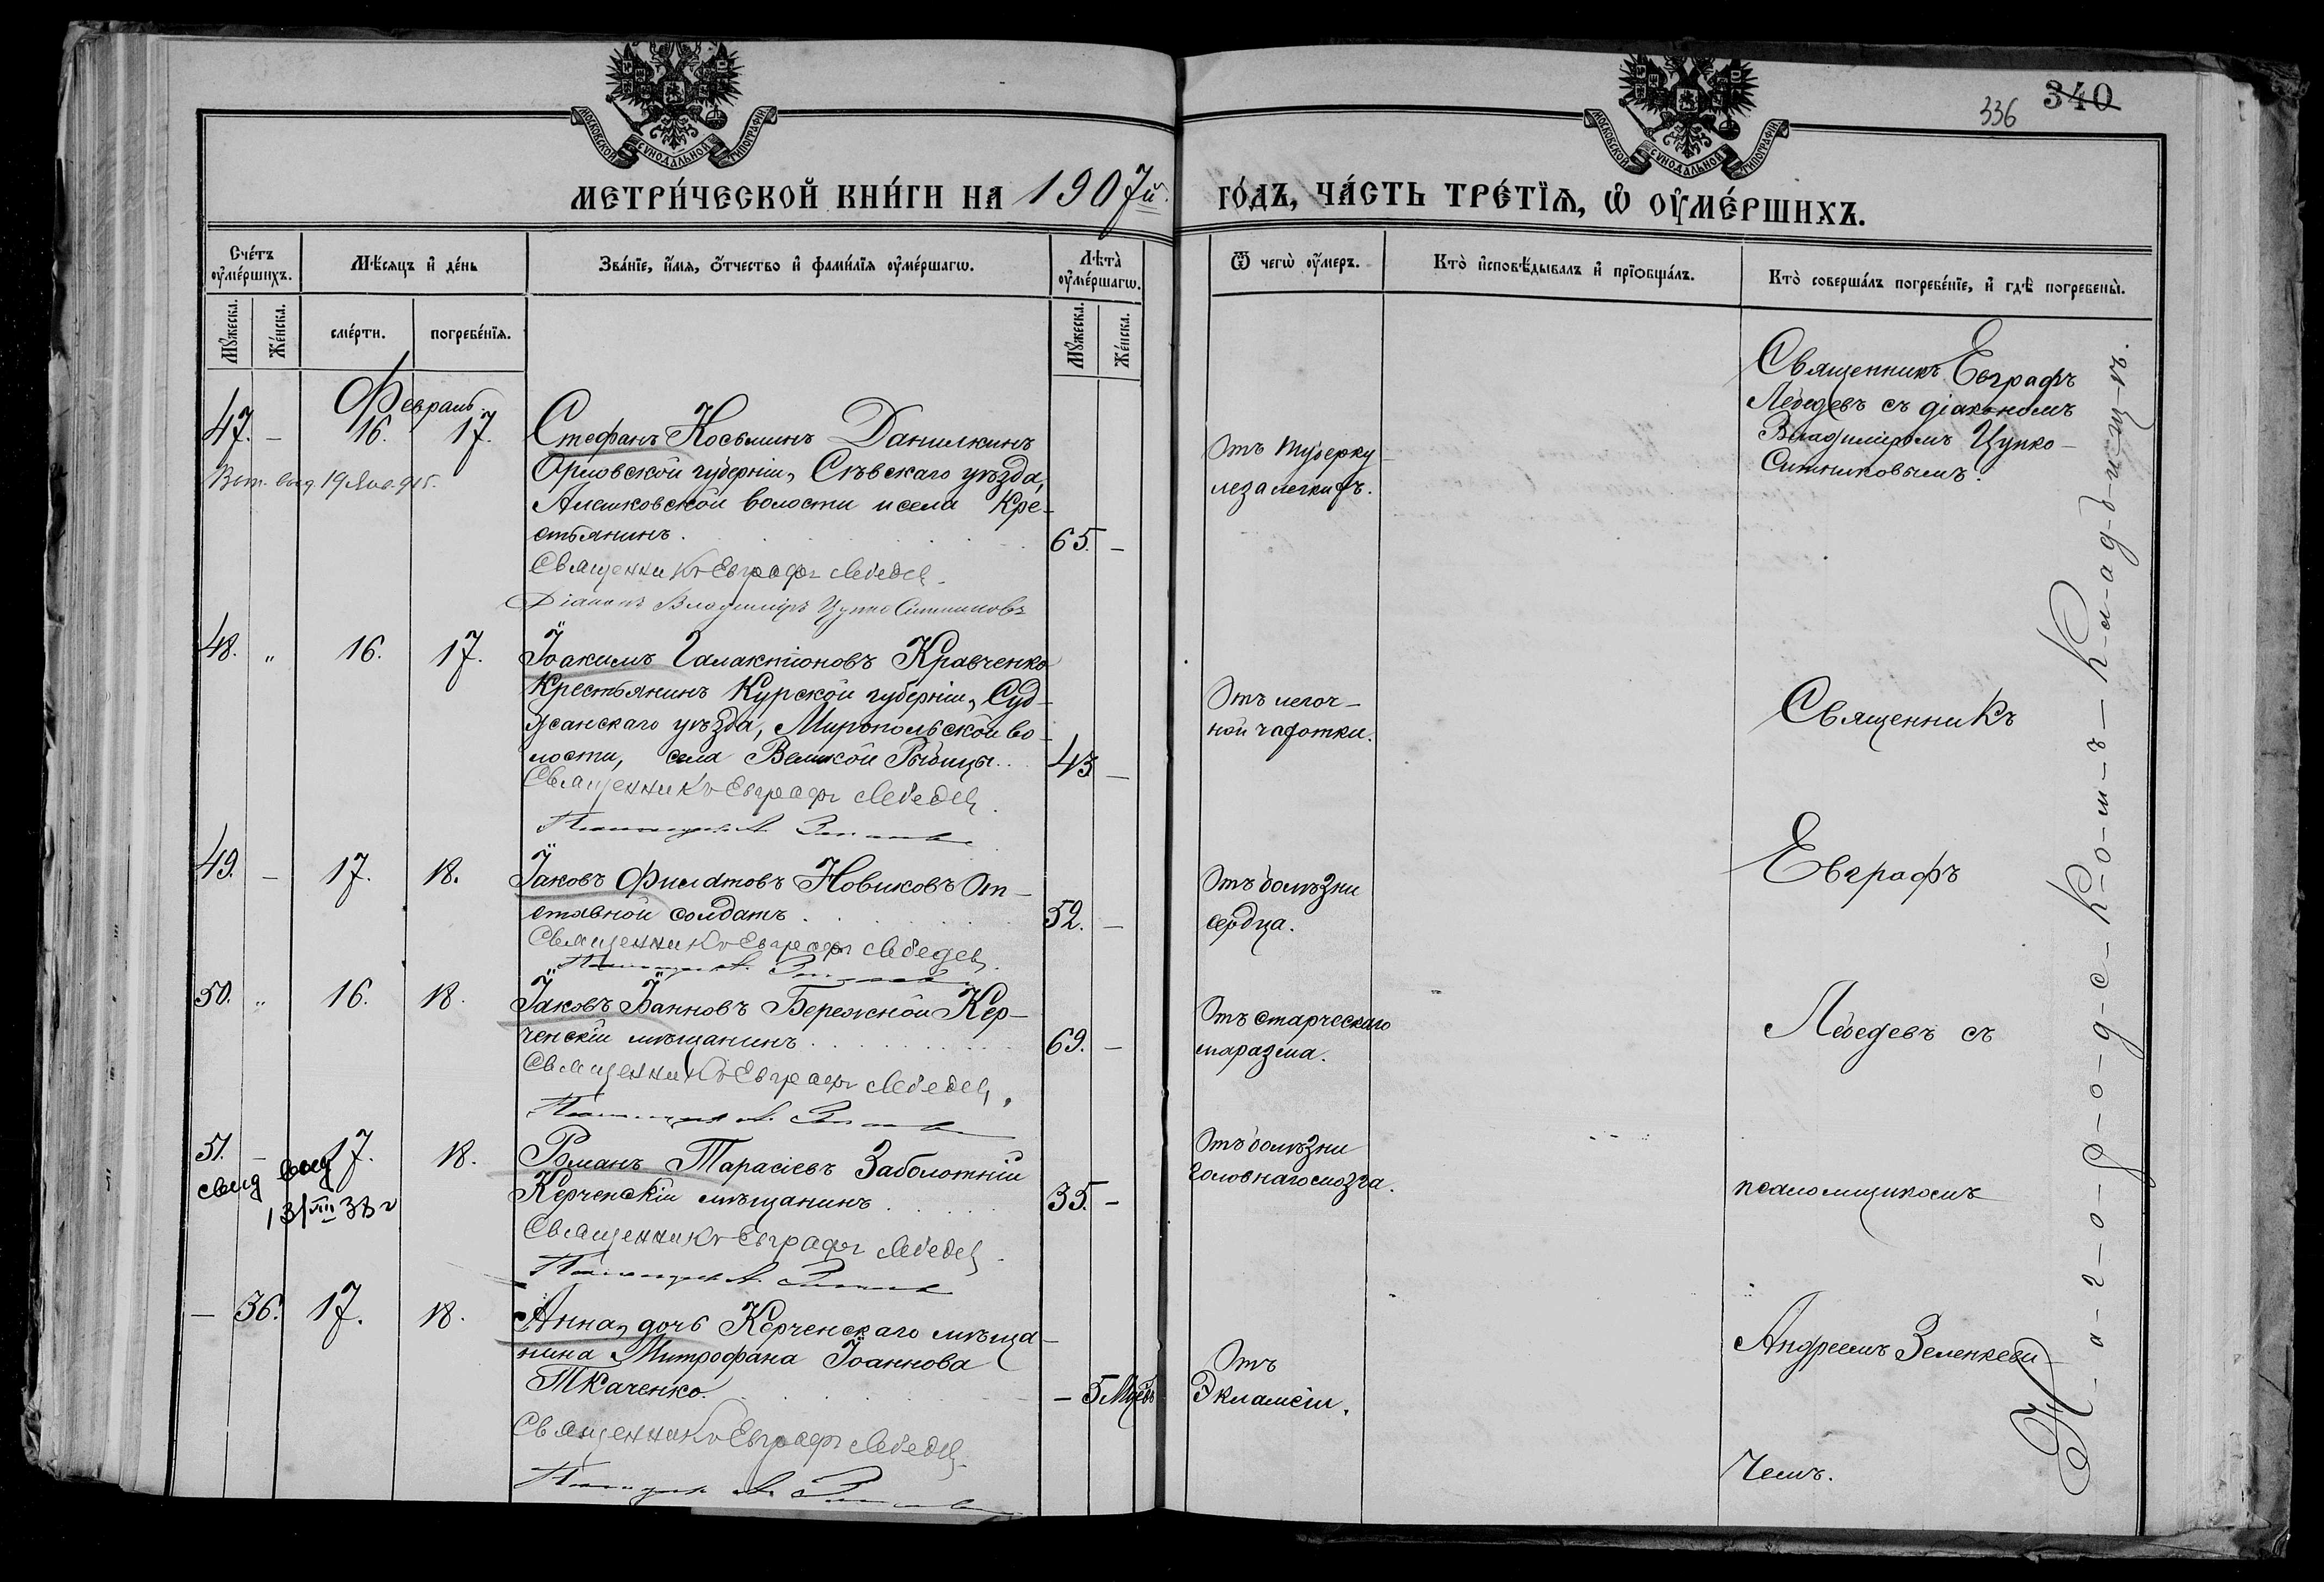 МОСКОВСКОЙ СѴНОДАЛЬНОЙ ТИПОГРАФІИ
МОСКОВСКОЙ СѴНОДАЛЬНОЙ ТИПОГРАФІИ
336 340
МЕТРИ́ЧЕСКОЙ КНИ́ГИ НА 1907й.
ГО́ДЪ, ЧА́СТЬ ТРЕ́ТЇѦ, Ѡ҆ ОУ҆МЕ́РШИХЪ.
Сче́тъ оу҆ме́ршихъ.
Мѣ́сѧцъ и҆ де́нь
Зва́нїе, и҆́мѧ, ѻ҆́тчество и҆ фами́лїѧ оу҆ме́ршагѡ.
Лѣта̀ оу҆ме́ршагѡ.
Ѿ чегѡ̀ оу҆́меръ.
Кто̀ и҆сповѣ́дывалъ и҆ прїѻбща́лъ.
Кто̀ соверша́лъ погребе́нїе, и҆ гдѣ̀ погребены̀.
Мꙋ́жеска.
Же́нска.
сме́рти.
погребе́нїѧ.
Мꙋ́жеска.
Же́нска.
Февраль
47. – 16. 17.
Стефанъ Косьминъ Данилкинъ
Орловской губерніи, Сѣвскаго уѣзда,
Алешковской волости и села Кре-
стьянинъ.
65. –
Священникъ Евграфъ Лебедев
Діаконъ Владиміръ Цупко Ситниковъ
Отъ туберку-
леза легкихъ.
Священникъ Евграфъ
Лебедевъ съ діакономъ
Владиміромъ Цупко-
Ситниковымъ.
48. " 16. 17.
Іоакимъ Галактіоновъ Кравченко
Крестьянинъ Курской губерніи, Суд-
жанскаго уѣзда, Миропольской во-
лости, села Великой Рыбицы.
43 –
Священникъ Евграфъ Лебедев
Отъ легоч-
ной чахотки.
Священникъ
49. – 17. 18.
Іаковъ Филатовъ Новиковъ От-
ставной солдатъ.
52. –
Священникъ Евграфъ Лебедев
Отъ болѣзни
сердца.
Евграфъ
50. " 16. 18.
Іаковъ Іоанновъ Бережной Кер-
ченскій мѣщанинъ
69. –
Священникъ Евграфъ Лебедев
Отъ старческаго
маразма.
Лебедевъ съ
51. – 17. 18.
свид выд
13/VIII 33 г
Романъ Тарасіевъ Заболотній
Керченскій мѣщанинъ
35. –
Священникъ Евграфъ Лебедев
Отъ болѣзни
головнаго мозга.
псаломщикомъ
– 36. 17. 18.
Анна, дочь Керченскаго мѣща-
нина Митрофана Іоаннова
Ткаченко.
– 5 Мцевъ
Священникъ Евграфъ Лебедев
Отъ
Экламсіи.
Андреемъ Зеленкеви-
чемъ.
Н-а-г-о-р-о-д-с-к-о-м-ъ-к-л-а-д-б-и-щ-ѣ.